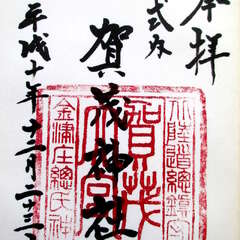 奉拝
式内
賀茂神社
平成十年十二月二十三日
北陸道総鎮守
賀茂
金津庄總氏神